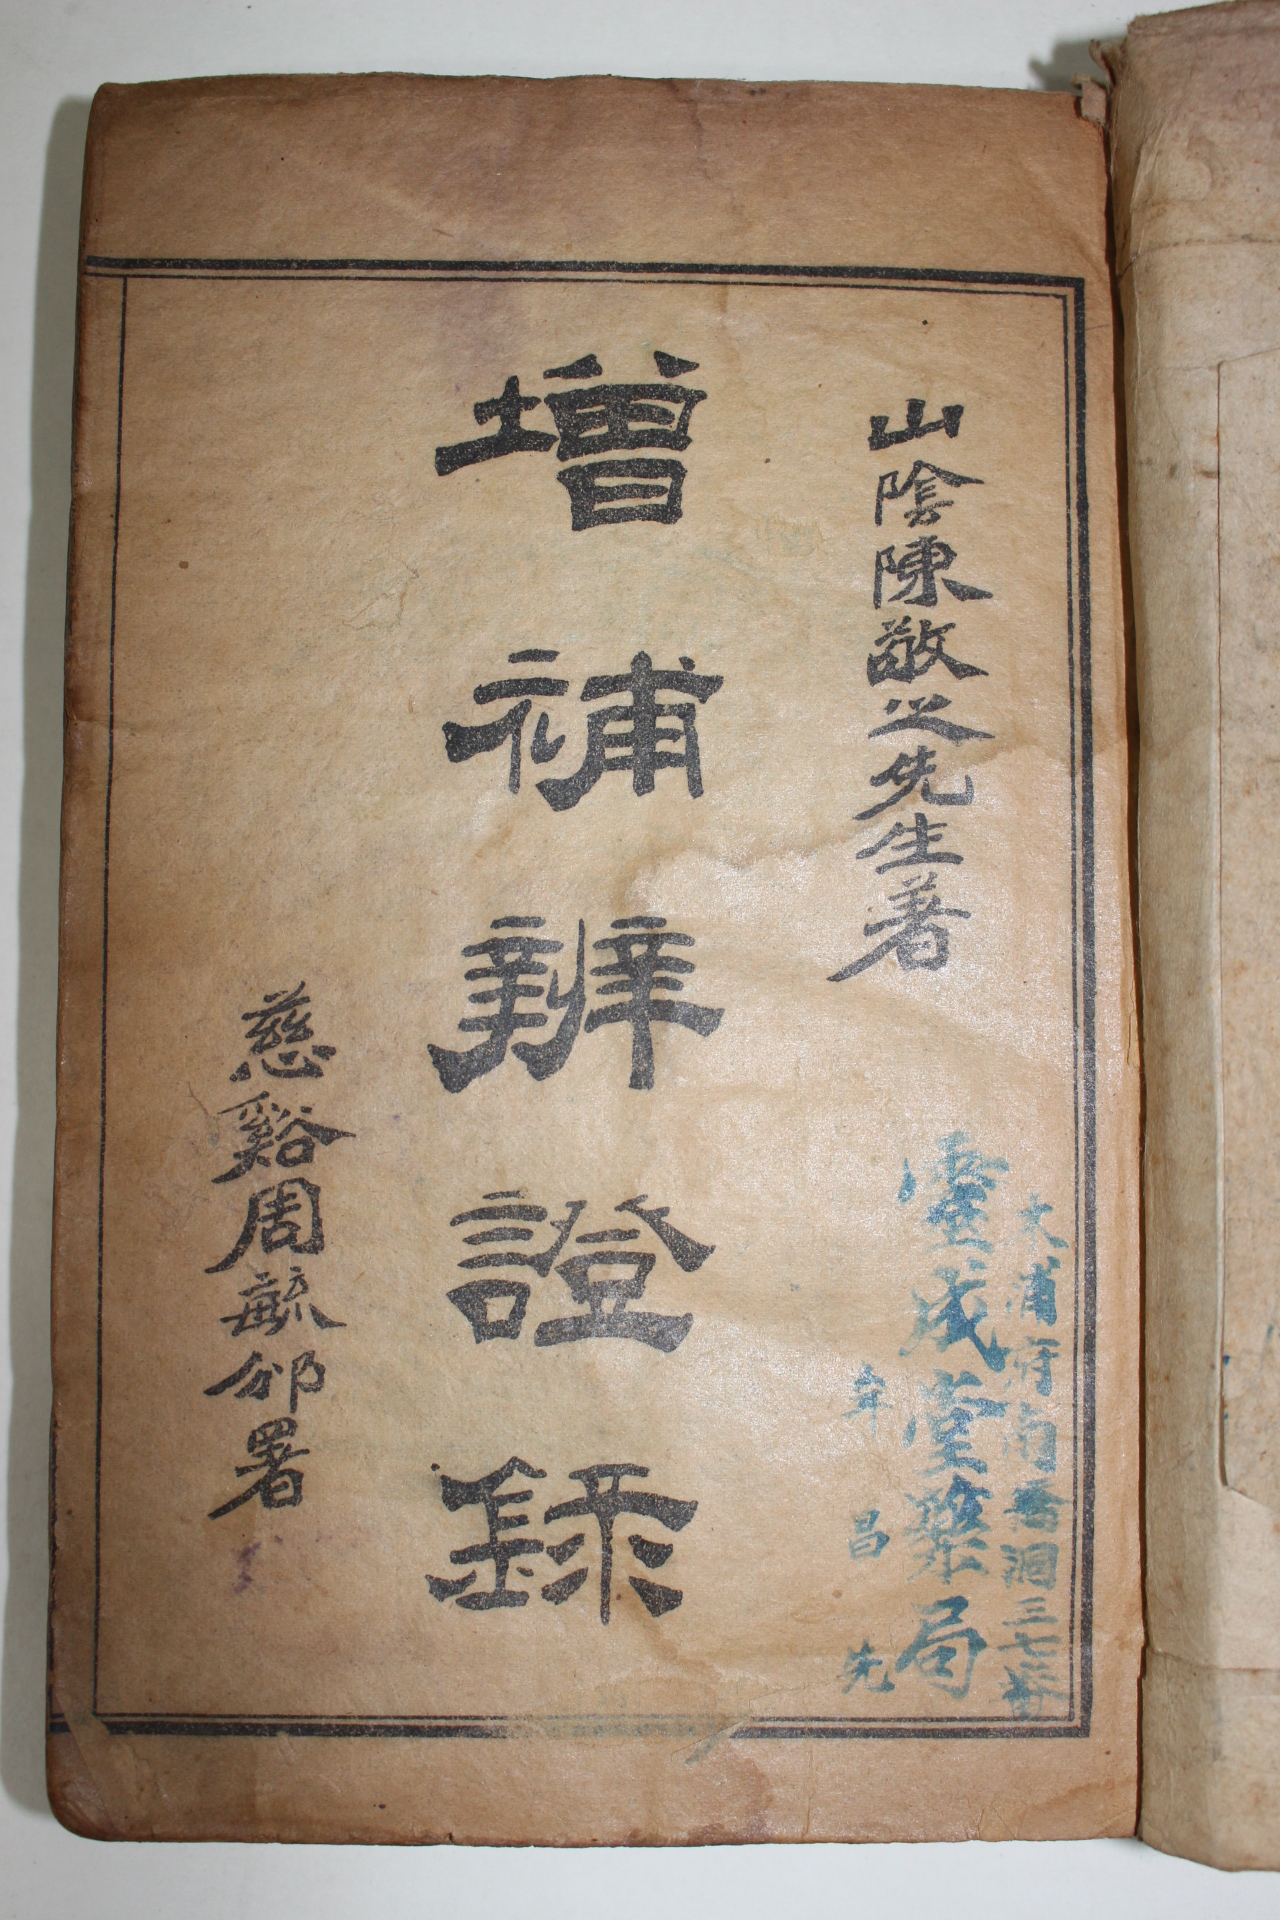 山陰陳敬之先生著
增補辨證錄
慈谿周毓邠署
大浦府南舊洞三七番
靈成堂藥局
年昌先